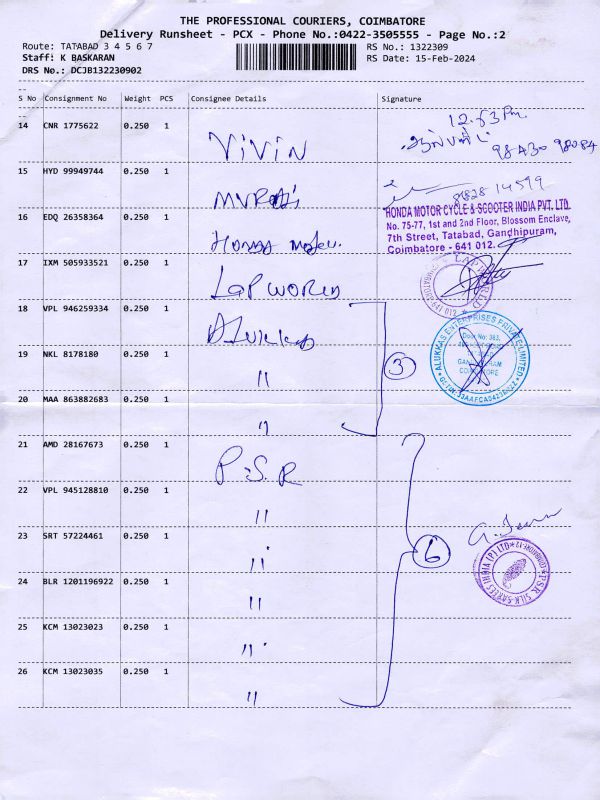 THE PROFESSIONAL COURIERS, COIMBATORE
Delivery Runsheet - PCX - Phone No.:0422-3505555 - Page No.:2
Route: TATABAD 3 4 5 6 7
RS No.: 1322309
Staff: K BASKARAN
RS Date: 15-Feb-2024
DRS No.: DCJB132230902
S No Consignment No Weight PCS Consignee Details Signature
12.53 Pm
14 CNR 1775622 0.250 1 VIVIN
98430 98084
15 HYD 99949744 0.250 1
14599
HONDA MOTOR CYCLE & SCOOTER INDIA PVT. LTD.
No. 75-77, 1st and 2nd Floor, Blossom Enclave,
7th Street, Tatabad, Gandhipuram,
Coimbatore - 641 012.
16 EDQ 26358364 0.250 1 Honda
17 IXM 505933521 0.250 1 Lap WORLD
LAP WORLD
18 VPL 946259334 0.250 1
ALUKKAS ENTERPRISES PRIVATE LIMITED
Door No: 383,
19 NKL 8178180 0.250 1 "
3
20 MAA 863882683 0.250 1 "
21 AMD 28167673 0.250 1 P.S.R
22 VPL 945128810 0.250 1 "
23 SRT 57224461 0.250 1 "
6
PSR SILK SAREES INDIA (P) LTD
24 BLR 1201196922 0.250 1 "
25 KCM 13023023 0.250 1 "
26 KCM 13023035 0.250 1 "